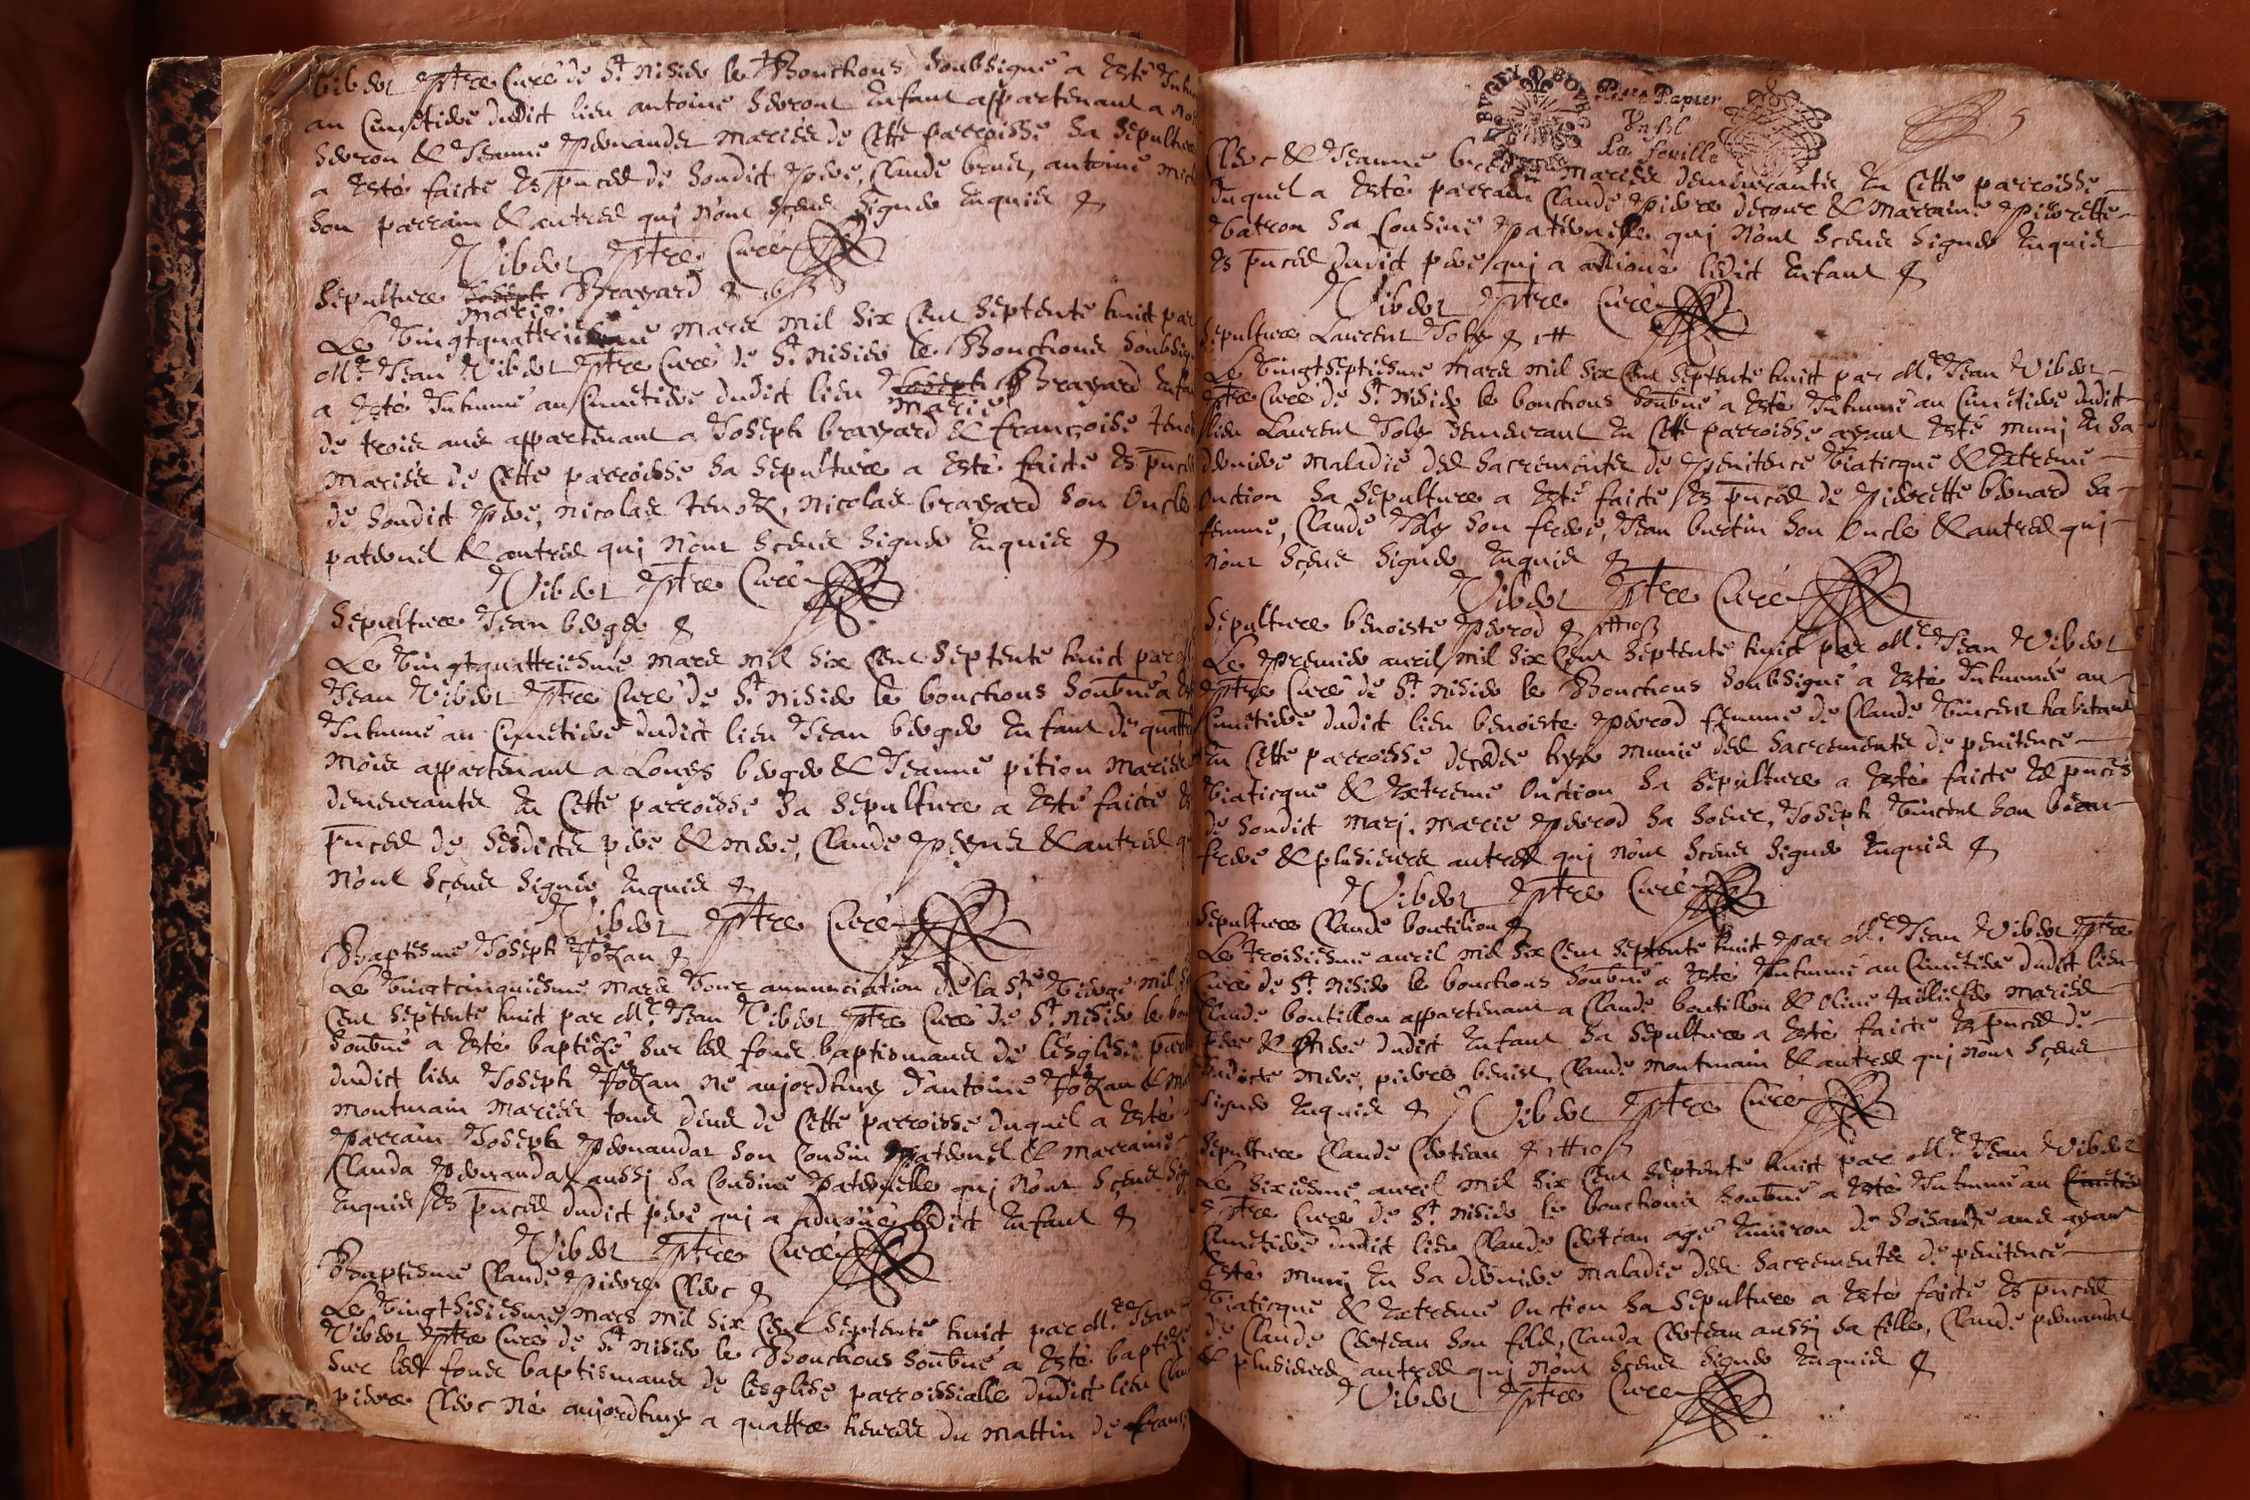 Vibert ptre Curé de St nisier le Bouchoux soubsigné a esté Inhu
au Cimetiere dudict lieu antoine Enfant appartenant a
& Jeanne pernauder mariés de Cette parroisse sa sepulture
a esté faicte Es pnces de sondict pere, Claude antoine
son parrain & autres quj n'ont sçeus signer Enquis &
Vibert ptre Curé
Sepulture Joseph Brayard &
marie
Le Vingtquattriesme mars mil six Cent septente huict par
Mre Jean Vibert ptre Curé de St nisier le Bouchoux soubsig
a esté Inhumé au Cimetiere dudict lieu Joseph Brayard Enfa
marie
de trois ans appartenant a Joseph brayard & françoise
mariés de Cette parroisse sa sepulture a esté faicte Es pnces
de sondict pere, nicolas nicolas brayard son Oncle
paternel & autres quj n'ont sceus signer Enquis &
Vibert ptre Curé
Sepulture Jean berger &
Le Vingtquattriesme mars mil six Cent septente huict par
Jean Vibert ptre Curé de St nisier le bouchoux soubné a
Inhumé au Cimetiere dudict lieu Jean berger Enfant de quattre
mois appartenant a Louys berger & Jeanne pition mariés
demeurants En Cette parroisse sa sepulture a esté faicte
pnces de sesdicts pere & mere, Claude & autres
n'ont sçeus signer, Enquis &
Vibert ptre Curé
Baptesme Joseph &
Le Vingtcinquiesme mars Jour annunciation de la Ste Vierge mil
Cent septente huict par Mre Jean Vibert ptre Curé de St nisier le
soubné a esté baptizé sur les fons baptismaux de l'esglise
dudict lieu Joseph né aujordhuy d'antoine &
montmain mariés tous deux de Cette parroisse duquel a esté
parrain Joseph pernaudat son Cousin paternel & marraine
Clauda pernauda aussj sa Cousine paternelle quj n'ont sçeus
Enquis Es pnces dudict pere quj a aduoüé ledict Enfant &
Vibert ptre Curé
Baptesme Claude pierre Clerc &
Le Vingtsixiesme mars mil six Cent septente huict par Mre Jean
Vibert ptre Curé de St nisier le Bouchoux soubné a esté baptizé
sur les fons baptismaux de lesglise parroissialle dudict lieu
pierre Clerc né aujordhuy a quattre heures du mattin de
BVGEY
Petit Papier
Vn sl
La feuille
5
Clerc & Jeanne mariés demeurants En Cette parroisse
duquel a esté parrain Claude pierre & marraine pierrette
sa Cousine paternelle quj n'ont sceus signer Enquis
Es pnces dudict pere quj a aduoué ledict Enfant &
Vibert ptre Curé
Sepulture Laurent Joly &
Le Vingtseptiesme mars mil six Cent septente huict par Mre Jean Vibert
ptre Curé de St nisier le bouchoux soubné a esté Inhumé au Cimetiere dudict
lieu Laurent Joly demeurant En Cette parroisse ayant esté munj En sa
derniere maladie des sacrements de penitence Viaticque & Extreme
Onction sa sepulture a esté faicte Es pnces de pierrette bernard sa
femme, Claude Joly son frere, Jean burtin son Oncle & autres quj
n'ont sçeus signer Enquis &
Vibert ptre Curé
Sepulture benoiste perrod &
Le premier auril mil six Cent septente huict par Mre Jean Vibert
ptre Curé de St nisier le Bouchoux soubsigné a esté Inhumée au
Cimetiere dudict lieu benoiste perrod femme de Claude Vincent habitant
En Cette parroisse decedée hyer munie des sacrements de penitence
Viaticque & Extreme Onction sa sepulture a esté faicte Es pnces
de sondict marj, marie perrod sa soeur, Joseph Vincent son beau
frere & plusieurs autres quj n'ont sceus signer Enquis &
Vibert ptre Curé
Sepulture Claude boutillon &
Le troisiesme auril mil six Cent septente huict par Mre Jean Vibert ptre
Curé de St nisier le bouchoux soubné a esté Inhumé au Cimetiere dudict lieu
Claude boutillon appartenant a Claude boutillon & mariés
pere & mere dudict Enfant sa sepulture a esté faicte Es pnces de
sadicte mere, pierre benist, Claude montmain & autres quj n'ont sçeus
signer Enquis & Vibert ptre Curé
Sepulture Claude Cretean &
Le sixiesme auril mil six Cent septente huict par Mre Jean Vibert
ptre Curé de St nisier le bouchoux soubné a esté Inhumé au
Cimetiere dudict lieu Claude Cretean agé Enuiron de soisante ans ayant
esté munj En sa derniere maladie des sacrements de penitence
Viaticque & Extreme Onction sa sepulture a esté faicte Es pnces
de Claude Cretean son fils, Clauda Cretean aussj sa fille, Claude pernaudat
& plusieurs autres quj n'ont sceus signer Enquis &
Vibert ptre Curé